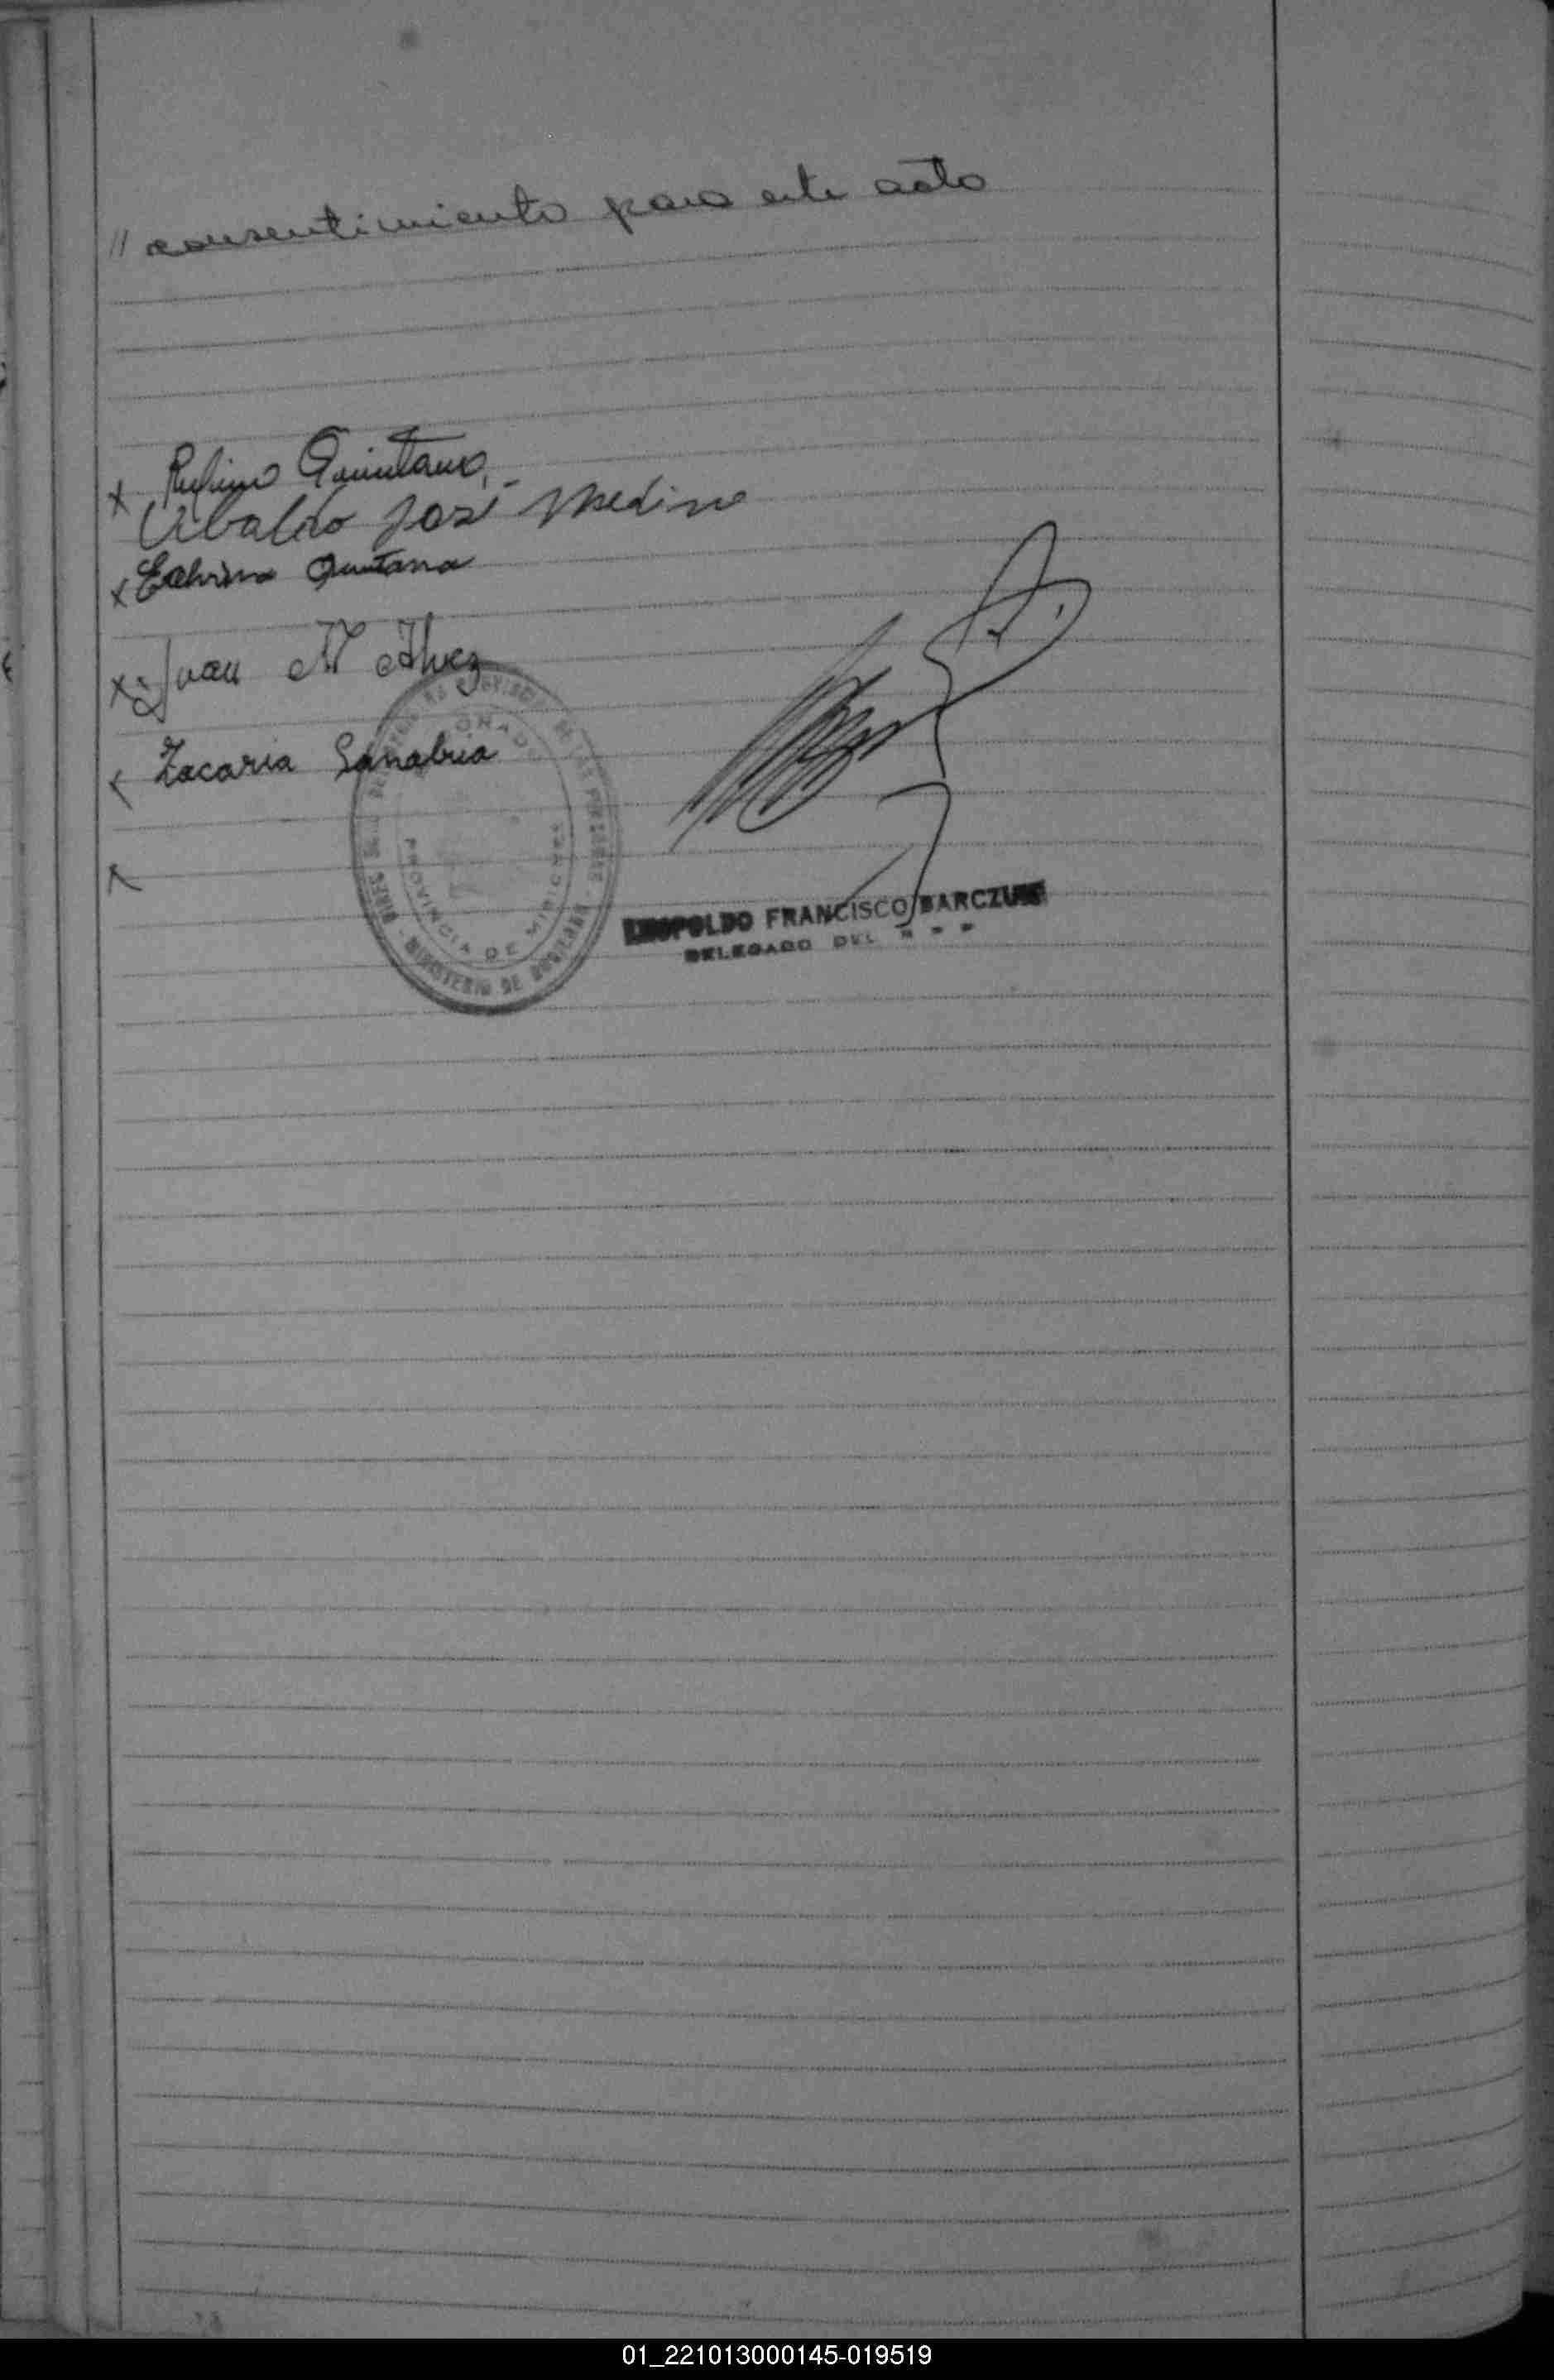 // consentimiento para este acto
x Rufino Quintana.-
Ubaldo José Medina
x Quintana
x Juan Alvez
Zacaria Sanabria
PROVINCIA DE MISIONES
MINISTERIO DE
LEOPOLDO FRANCISCO
DELEGADO DEL
01_221013000145-019519